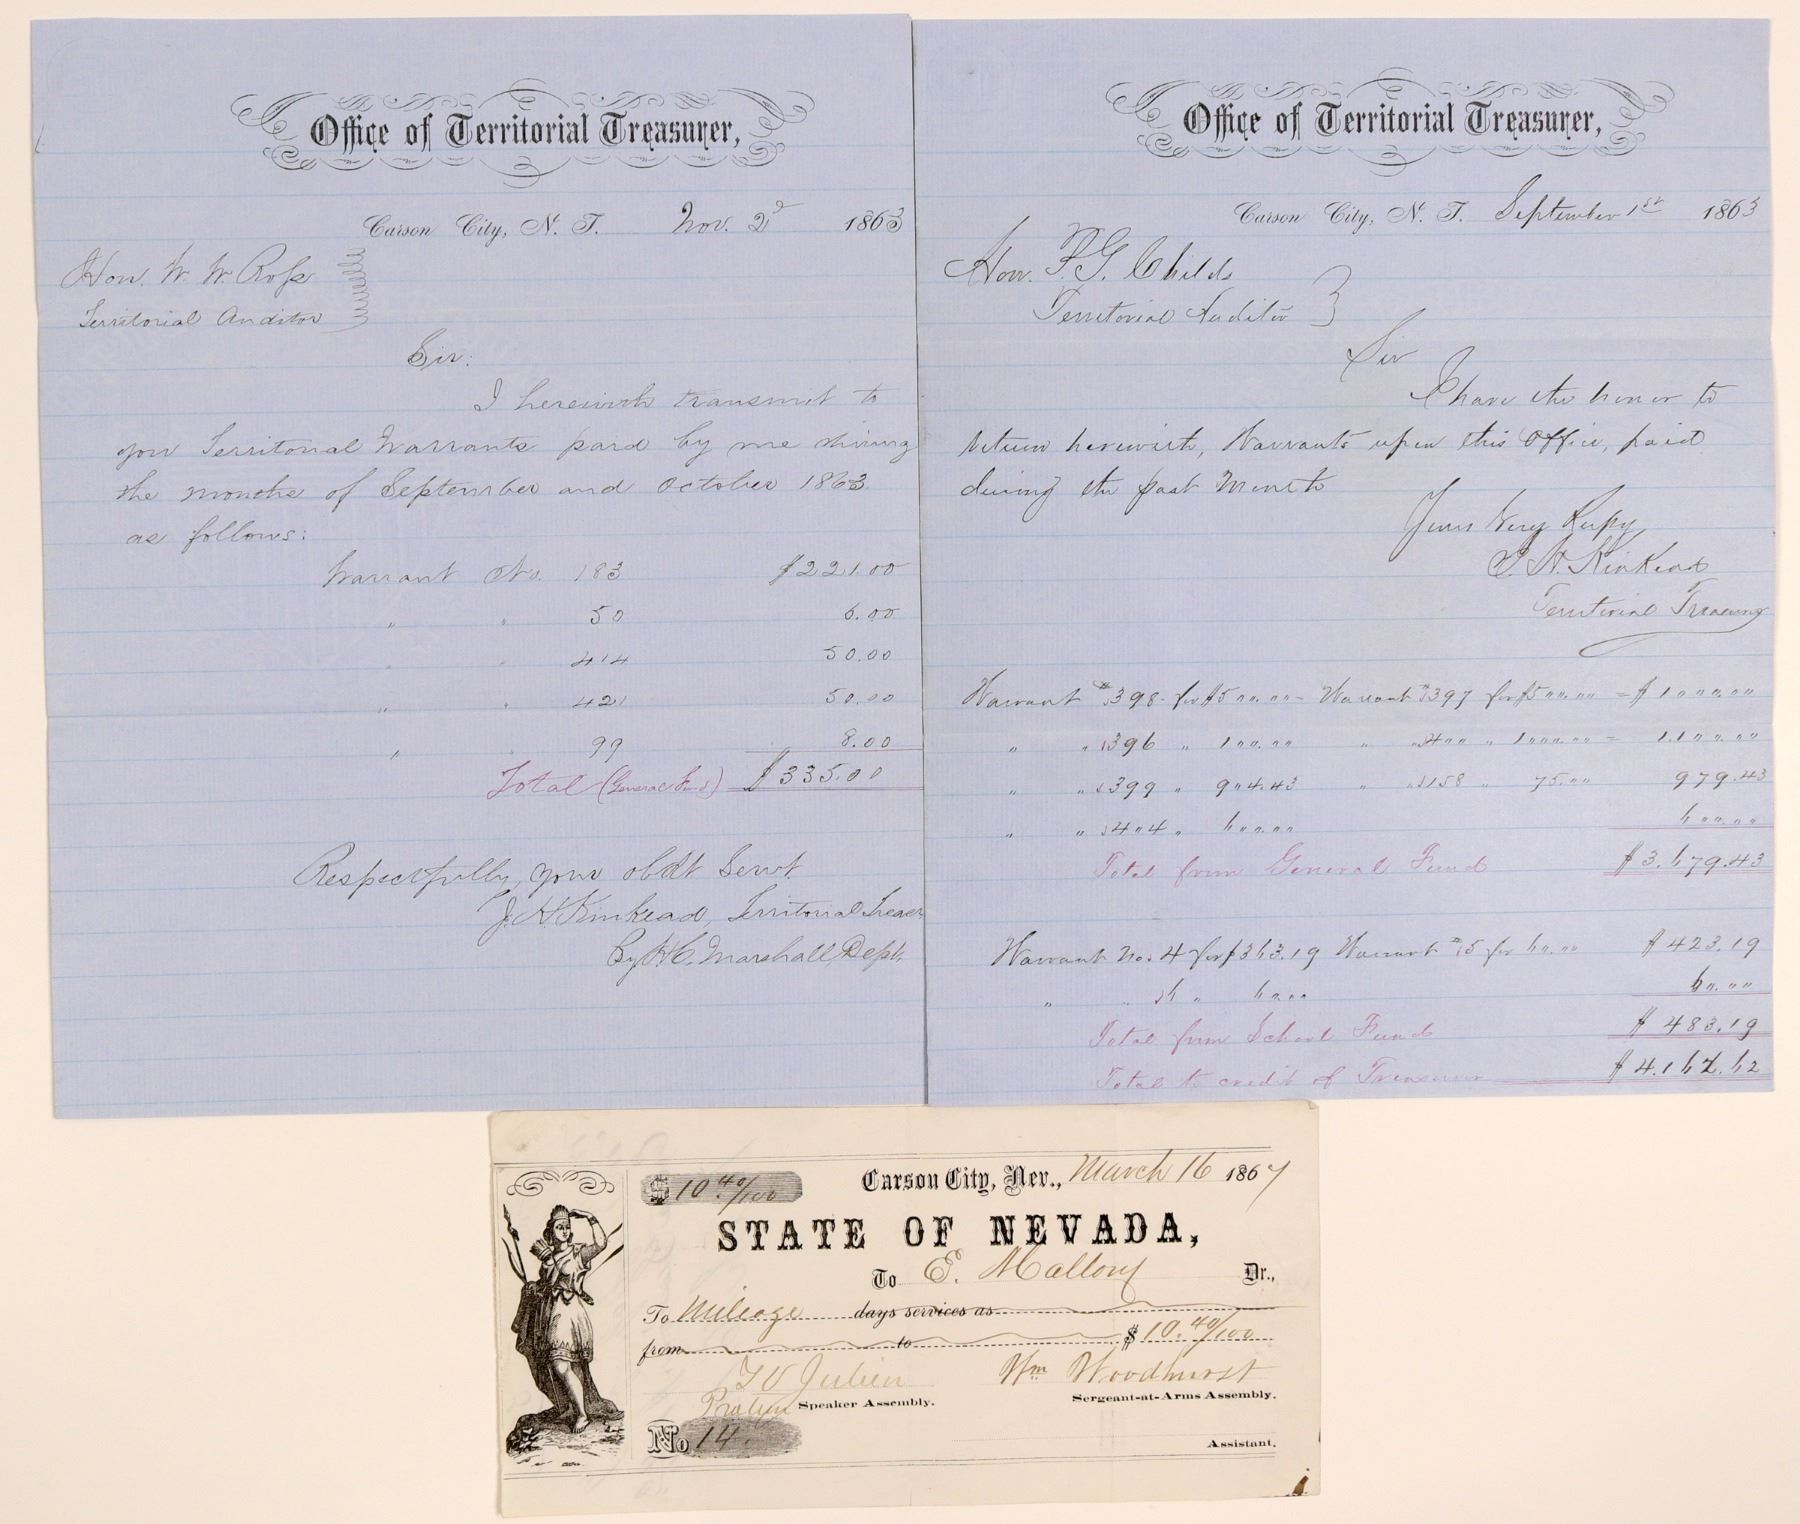 Office of Territorial Treasurer,
Carson City, N. T. Nov. 2d 1863
Hon. W. W. Ross
Territorial Auditor
Sir:
I herewith transmit to
you Territorial Warrants paid by me during
the months of September and October 1863
as follows:
Warrant No. 183 $221.00
" " 50 6.00
" " 414 50.00
" " 421 50.00
" " 99 8.00
Total (General Fund) $335.00
Respectfully, your obdt Servt
J. H. Kinkead, Territorial Treasr
By H. C. Marshall, Dept.
Office of Territorial Treasurer,
Carson City, N. T. September 1st 1863
Hon. P. G. Childs
Territorial Auditor
Sir
I have the honor to
return herewith, Warrants upon this Office, paid
during the past Month
Yours Very Respy
J. H. Kinkead
Territorial Treasurer
Warrant #398 for $500.00 - Warrant #397 for $500.00 = $1000.00
" " 396 " 100.00 " " 400 " 1000.00 = 1.100.00
" " 399 " 904.43 " " 158 " 75.00 979.43
" " 404 " 600.00 600.00
Total from General Fund $3.679.43
Warrant No. 4 for $363.19 Warrant #5 for 60.00 $423.19
" " 6 " 60.00 60.00
Total from School Fund $483.19
Total to credit of Treasurer $4.162.62
$10.40/100 Carson City, Nev., March 16 1867
STATE OF NEVADA,
To E. Mallory Dr.,
To Mileage days services as
from to $10.40/100
T V Julien Wm Woodhurst
Protem Speaker Assembly. Sergeant-at-Arms Assembly.
No 14.
Assistant.